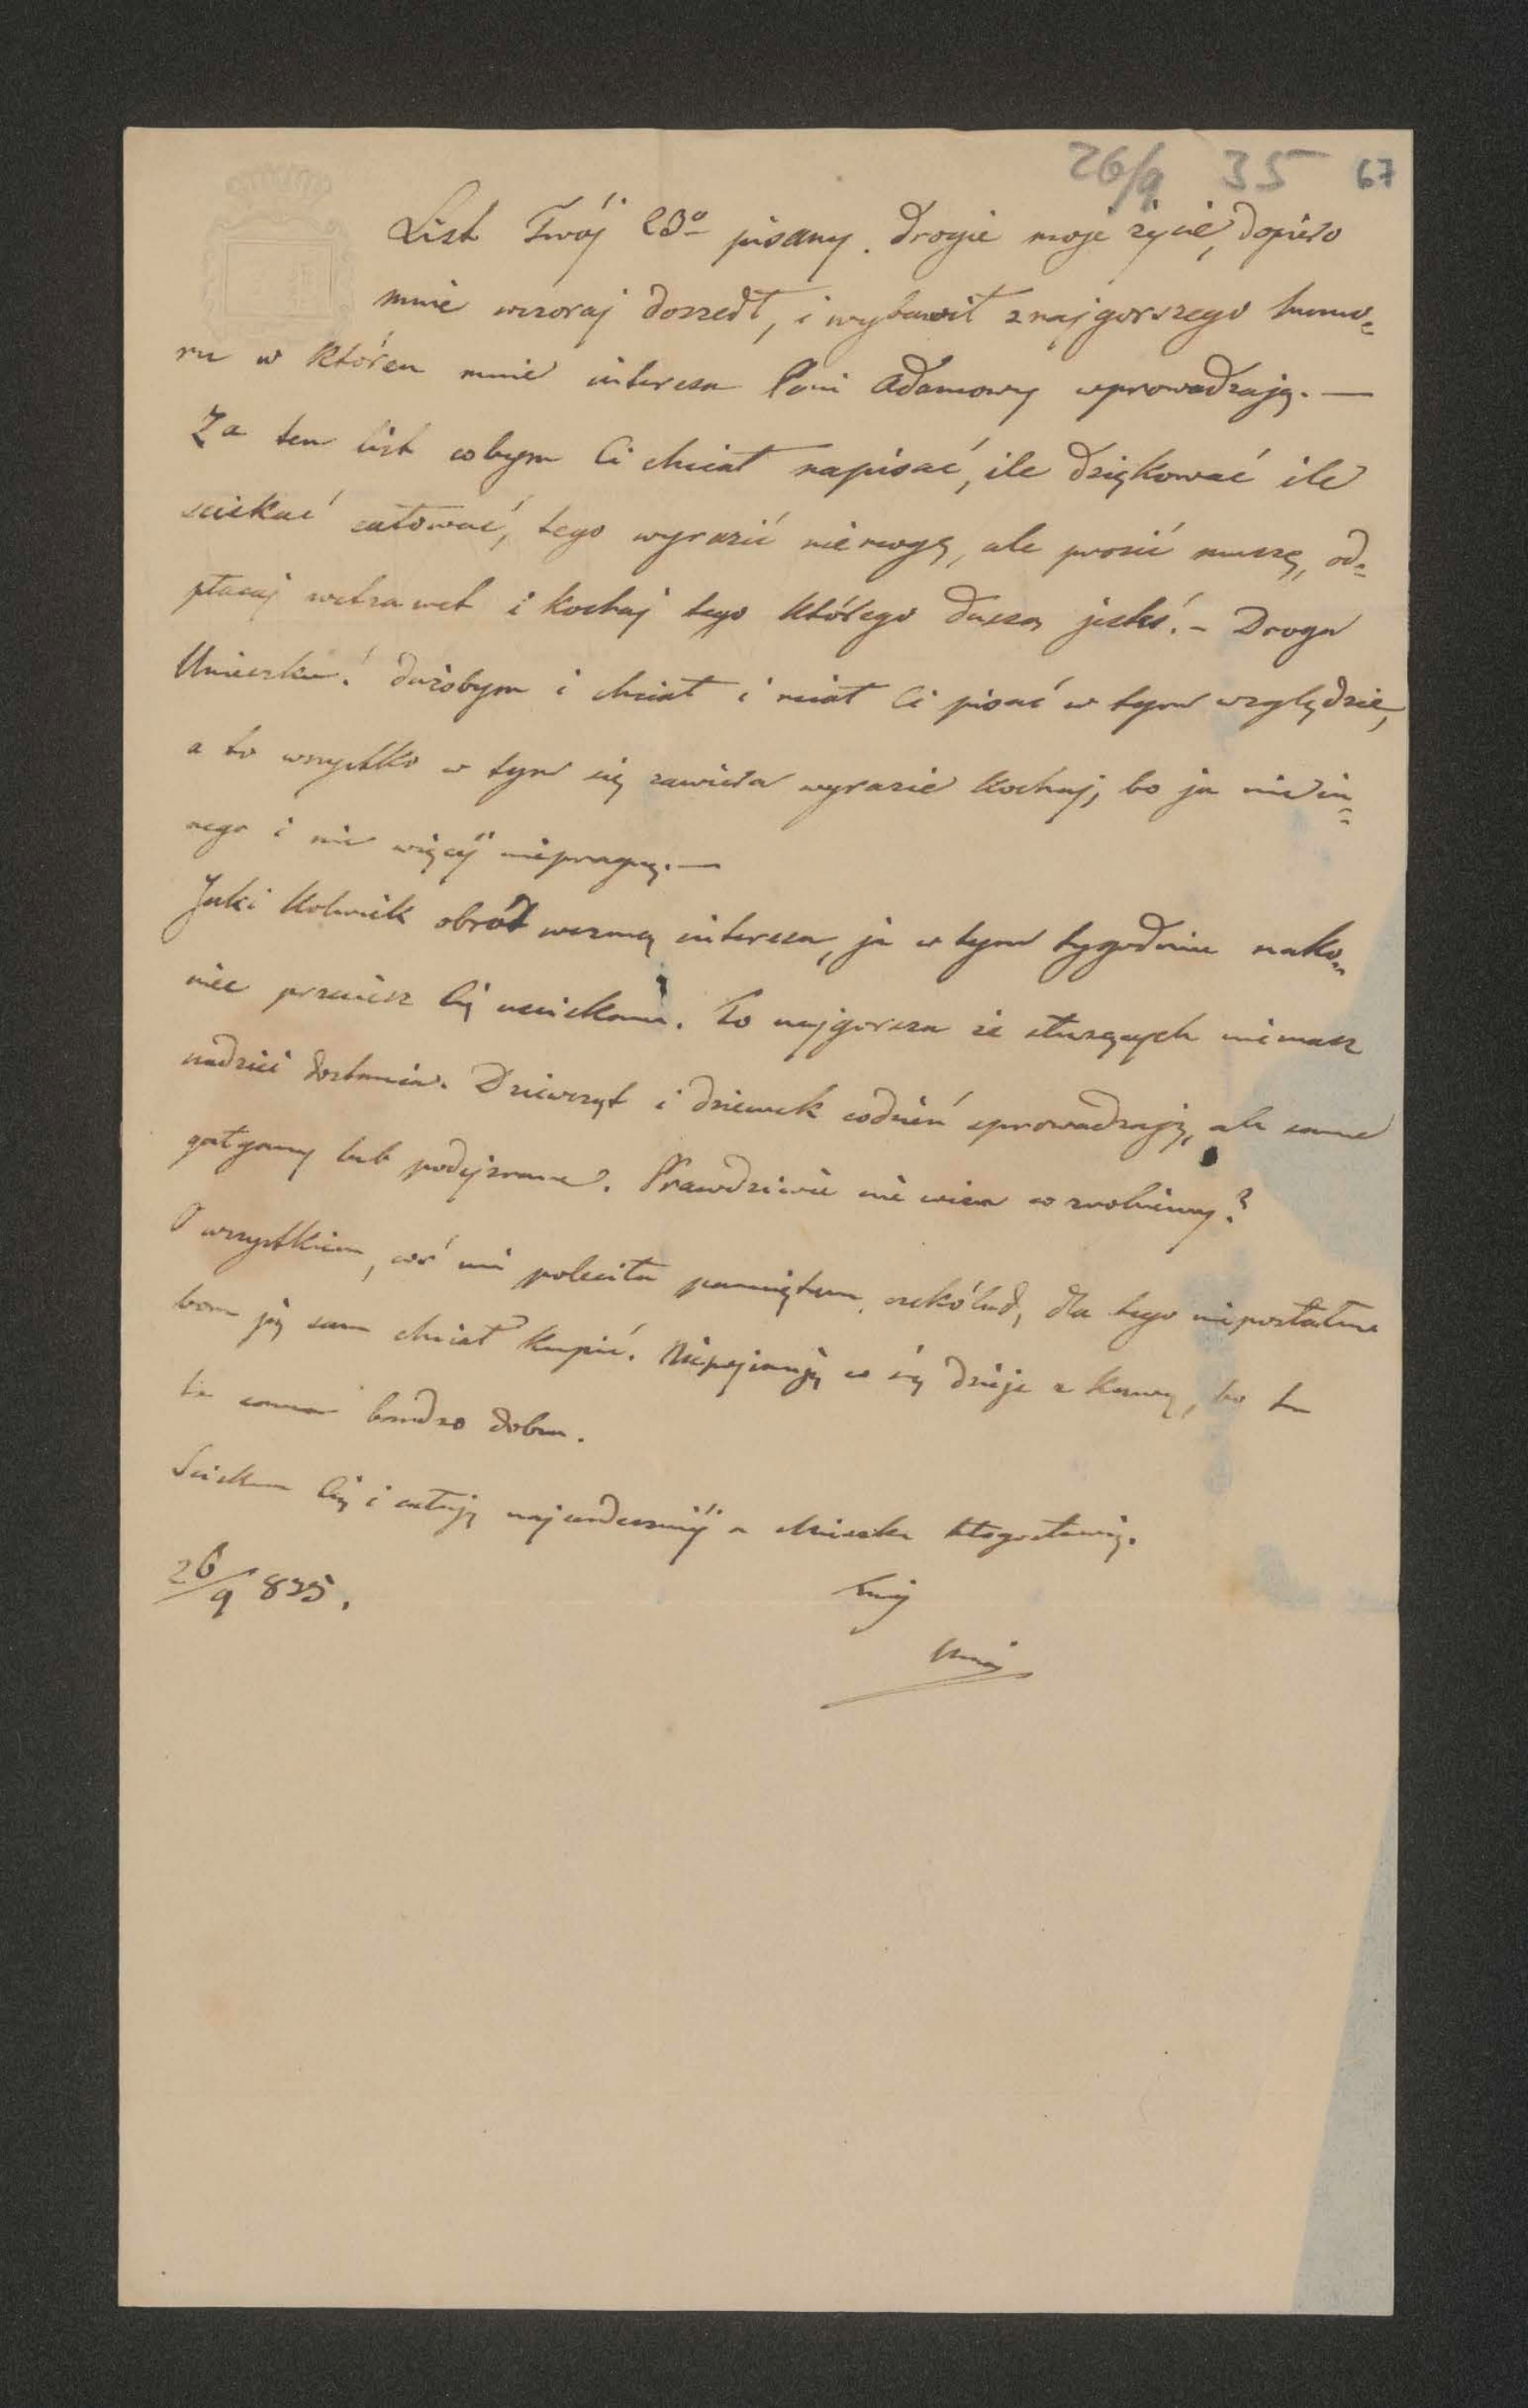 26/9 35 67
List Twój 23º pisany. drogie moje życie, dopiéro
mnie wczoraj doszedł, i wybawił z najgorszego humo=
ru w którен mnie interesa Pani Adamowy wprowadzają. —
Za ten list cobym Ci chciał napisać, ile dziękować ile
sciskać całować, tego wyrazić niemogę, ale prosić muszę, od=
płacaj wetzawet i kochaj tego którego duszą jesteś. – Droga
dużobym i chciał i miał Ci pisać w tym względzie,
a to wszystko w tym się zawiéra wyrazie kochaj, bo ja nic in=
nego i nic więcéj niepragnę. —
Jaki kolwiek obrót wezmą interesa, ja w tym tygodniu nako=
niec przecież Cię usciskam. To najgorsza że służących niemasz
nadziei dostania. Dziewcząt i dziewek codzień sprowadzają, ale same
gałgany lub podejzrane. Prawdziwie nie wiem co zrobiemy?
O wszystkiem, coś mi poleciła pamiętam, czekóladę, dla tego nieposłałem
bom ją sam chciał kupić. Niepojmuję co się dzieje z kawą, bo tu
ta sama bardzo dobra.
Sciskam Cię i całuję najserdeczniéj a błogosławię.
26/9 835.
Twój